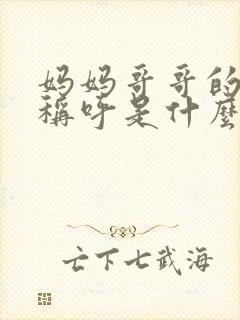 妈妈哥哥的
稱呼是什麼
亡下七武海